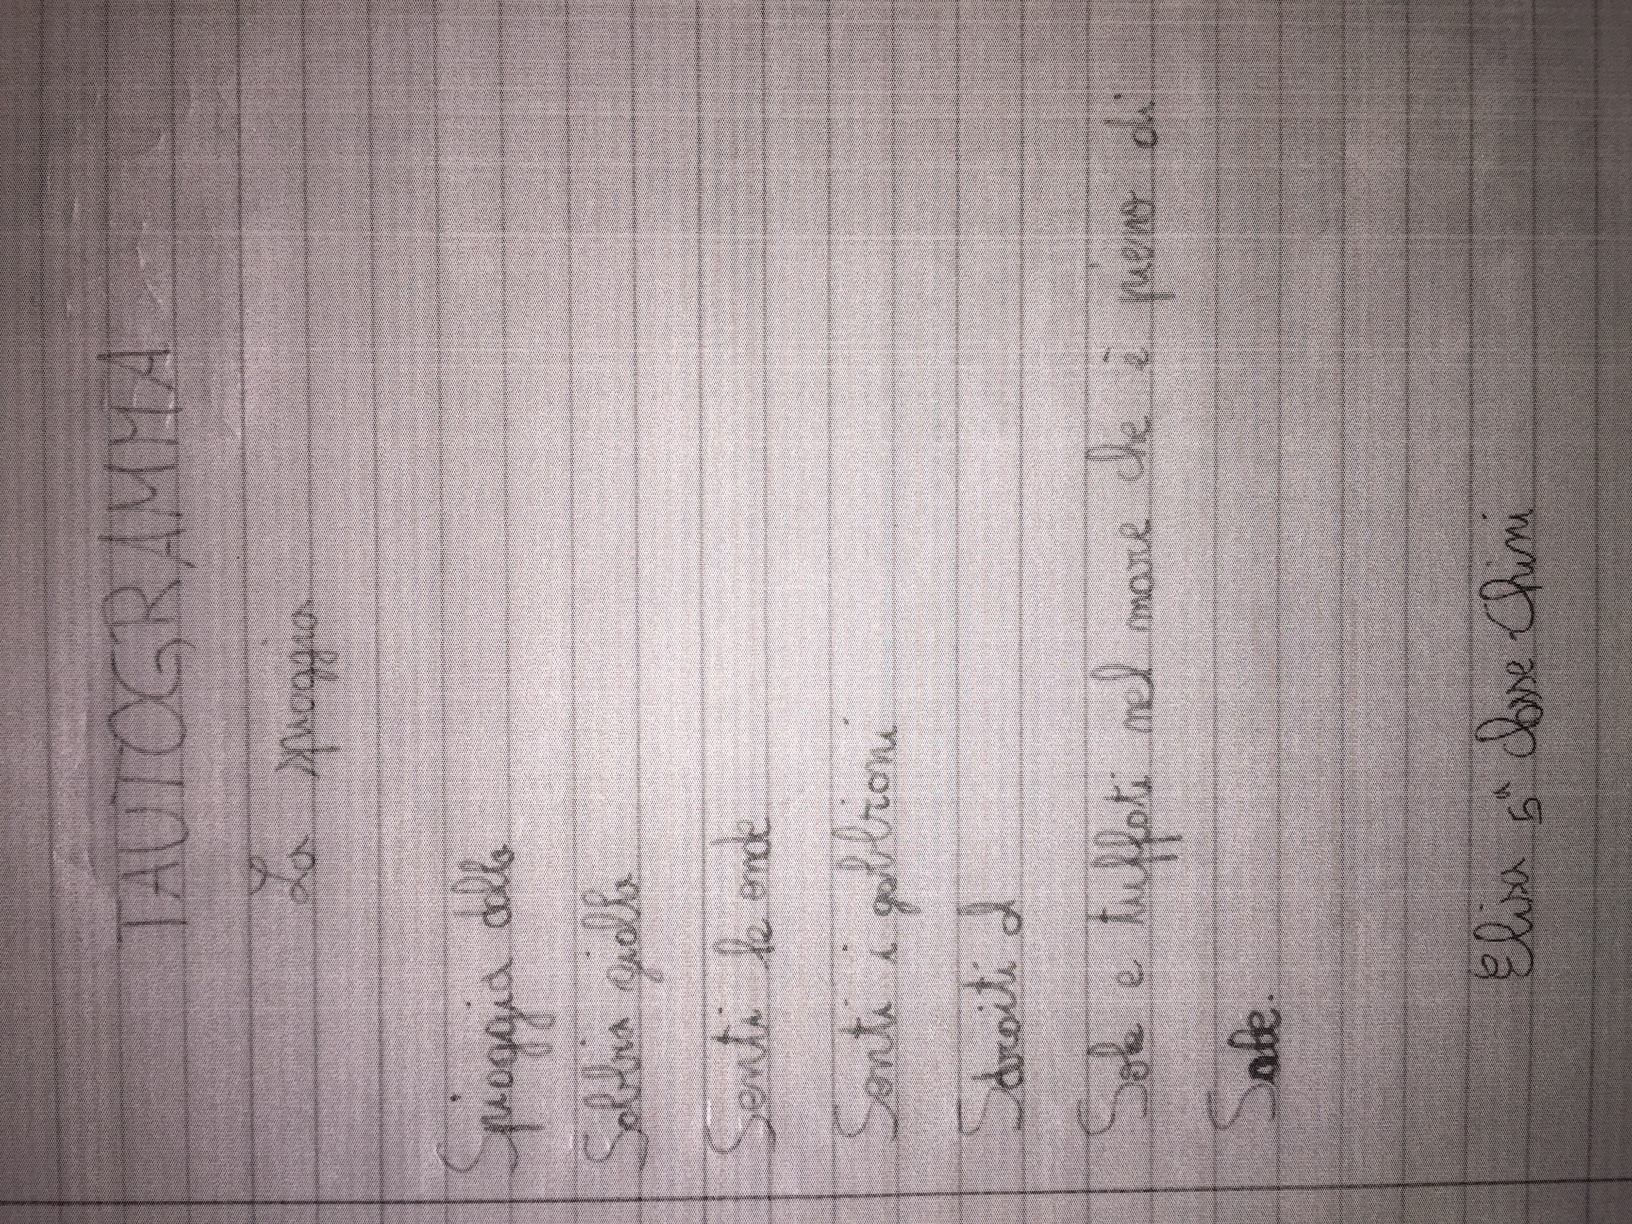 TAUTOGRAMMA
La spiaggia
Spiaggia dalla
Sabbia gialla
Senti le onde
Senti i gabbiani
Sdraiati al
Sole e tuffati nel mare che è pieno di
Sale.
Elisa 5ª classe Chini